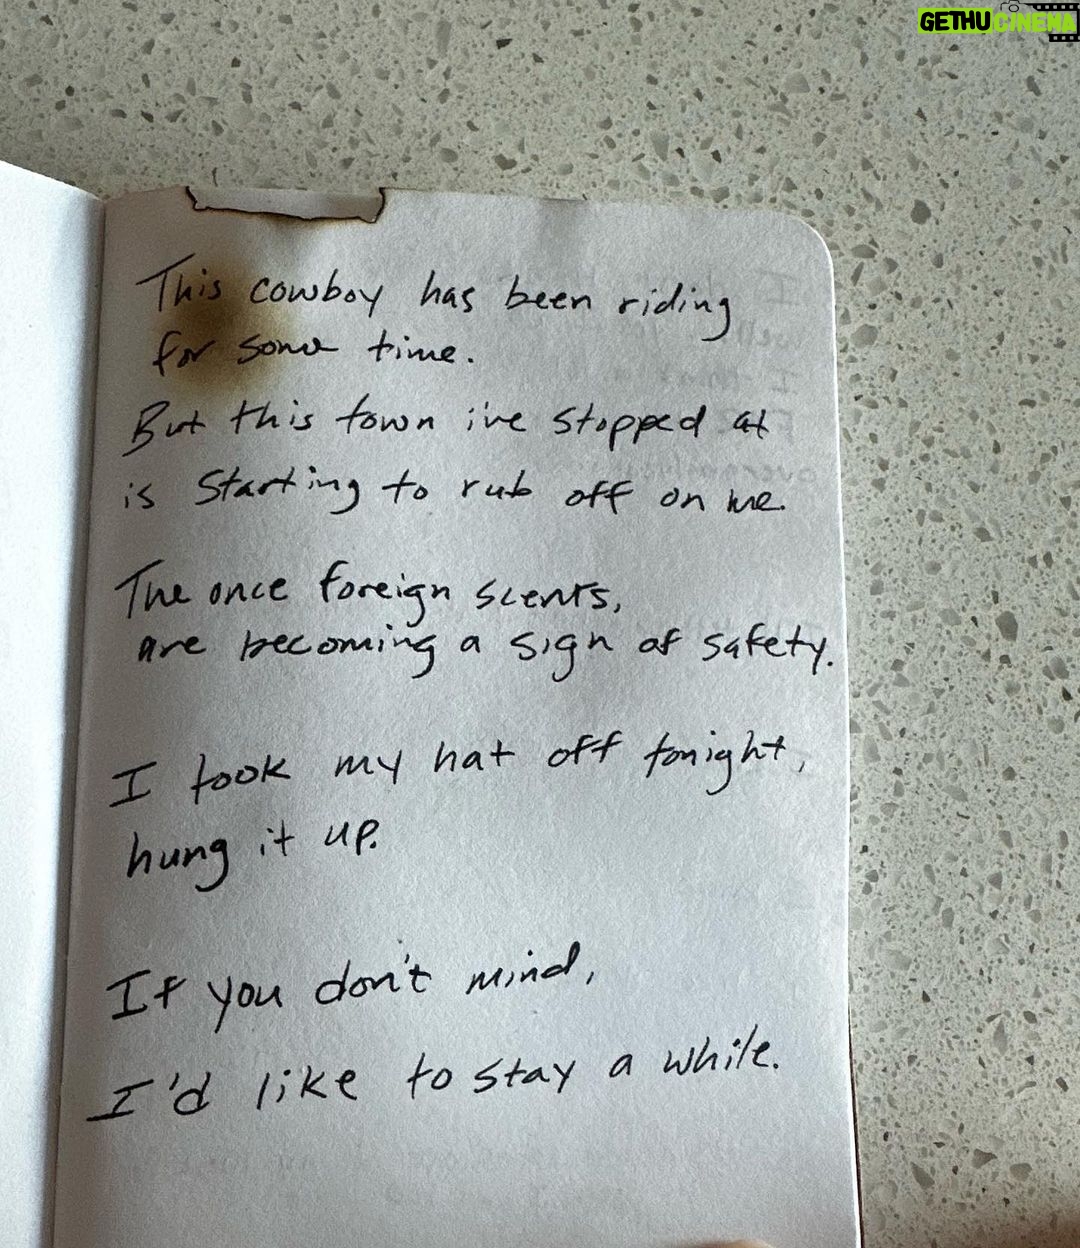 GETHUCINEMA
This cowboy has been riding
for some time.
But this town i've stopped at
is starting to rub off on me.
The once foreign scents,
are becoming a sign of safety.
I took my hat off tonight,
hung it up.
If you don't mind,
I'd like to stay a while.